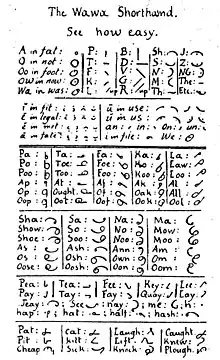 The Wawa Shorthand.
See how easy.
A in fat: P: B: Sh: J:
O in not: T: D: S: Z:
Oo in foot: F: V: N: NG:
OW in now: K: G: M: The:
Wa in was: L: R: Th: Etc.:
i in fit: ū in use:
E in legal: ŭ in us:
E in met: an: in: On: un:
I in file: We:
Pa: Ta: Fa: Ka: La:
Po: Toe: Foe: Ko: Law:
Poo: Too: Foo: Koo: Loo:
Ap: At: Af: Ak: Al:
Op: Ought: Off: Oak: All:
Oop: Oot: Oof: Ook: Ool:
Sha: Sa: Na: Ma:
Show: So: No: Mow:
Shoe: Soo: Noo: Moo:
As: Ash: Ann: Am:
Os: Osh: On: Om:
Oose: Oosh: Oon: Oom:
Pea: Tea: Fee: Key: Lee:
Pay: Tay: Fay: Quay: Lay:
Jeay: See: nay: me:
hap: hat: half: hash:
Pat: Cat: Laugh: Caught
Pit: Kilt: Lift: Knew:
Cheap: Sick: Knock: Plough.